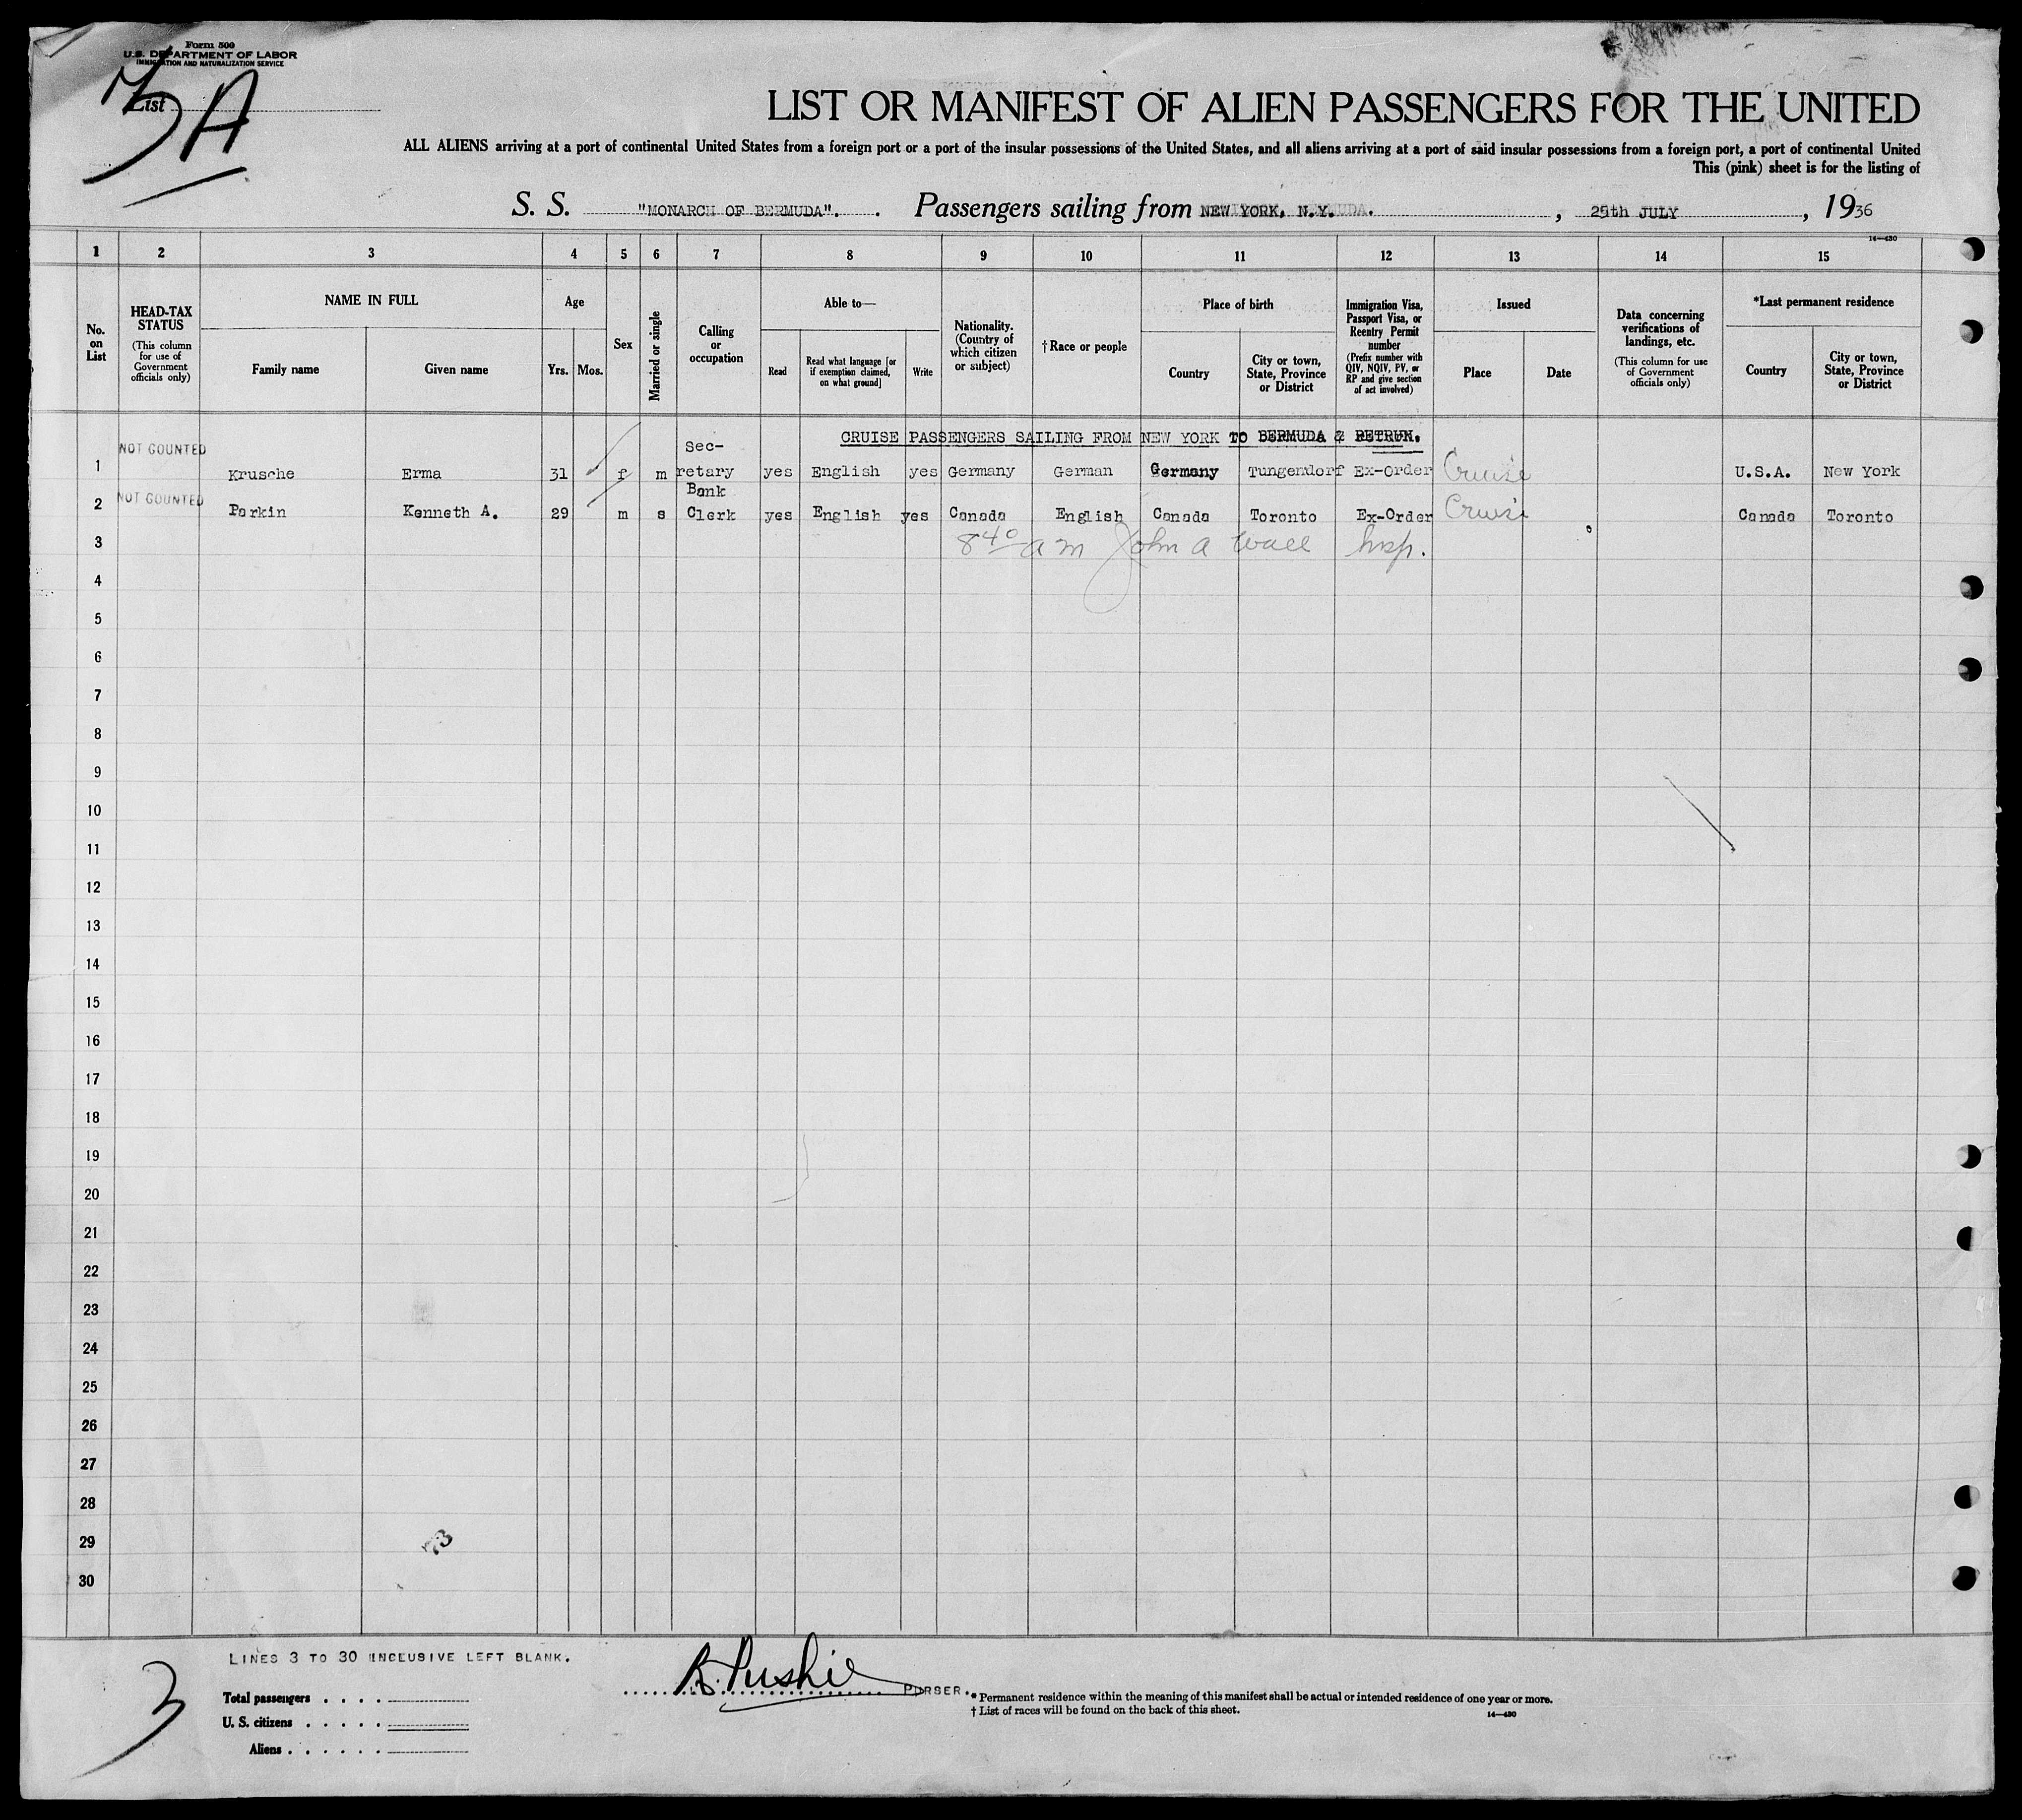 Form 500
U.S. DEPARTMENT OF LABOR
IMMIGRATION AND NATURALIZATION SERVICE
List
3A
LIST OR MANIFEST OF ALIEN PASSENGERS FOR THE UNITED
ALL ALIENS arriving at a port of continental United States from a foreign port or a port of the insular possessions of the United States, and all aliens arriving at a port of said insular possessions from a foreign port, a port of continental United
This (pink) sheet is for the listing of
S. S. "MONARCH OF BERMUDA". Passengers sailing from NEW YORK, N.Y. , 25th JULY , 1936
14—430
1 2 3 4 5 6 7 8 9 10 11 12 13 14 15
No. on List
HEAD-TAX STATUS
(This column for use of Government officials only)
NAME IN FULL
Family name Given name
Age
Yrs. Mos.
Sex
Married or single
Calling or occupation
Able to—
Read
Read what language [or if exemption claimed, on what ground]
Write
Nationality. (Country of which citizen or subject)
†Race or people
Place of birth
Country
City or town, State, Province or District
Immigration Visa, Passport Visa, or Reentry Permit number
(Prefix number with QIV, NQIV, PV, or RP and give section of act involved)
Issued
Place Date
Data concerning verifications of landings, etc.
(This column for use of Government officials only)
*Last permanent residence
Country
City or town, State, Province or District
CRUISE PASSENGERS SAILING FROM NEW YORK TO BERMUDA & RETRUN.
NOT COUNTED
1 Krusche Erma 31 f m Sec-retary yes English yes Germany German Germany Tungendorf Ex-Order Cruise U.S.A. New York
NOT COUNTED
2 Parkin Kenneth A. 29 m s Bank Clerk yes English yes Canada English Canada Toronto Ex-Order Cruise Canada Toronto
3 8 40 am John A Wall Insp.
4
5
6
7
8
9
10
11
12
13
14
15
16
17
18
19
20
21
22
23
24
25
26
27
28
29
30
73
LINES 3 TO 30 INCLUSIVE LEFT BLANK.
3
Total passengers . . . .
U. S. citizens . . . . .
Aliens . . . . . .
R. Pushie PURSER.
* Permanent residence within the meaning of this manifest shall be actual or intended residence of one year or more.
† List of races will be found on the back of this sheet.
14—430